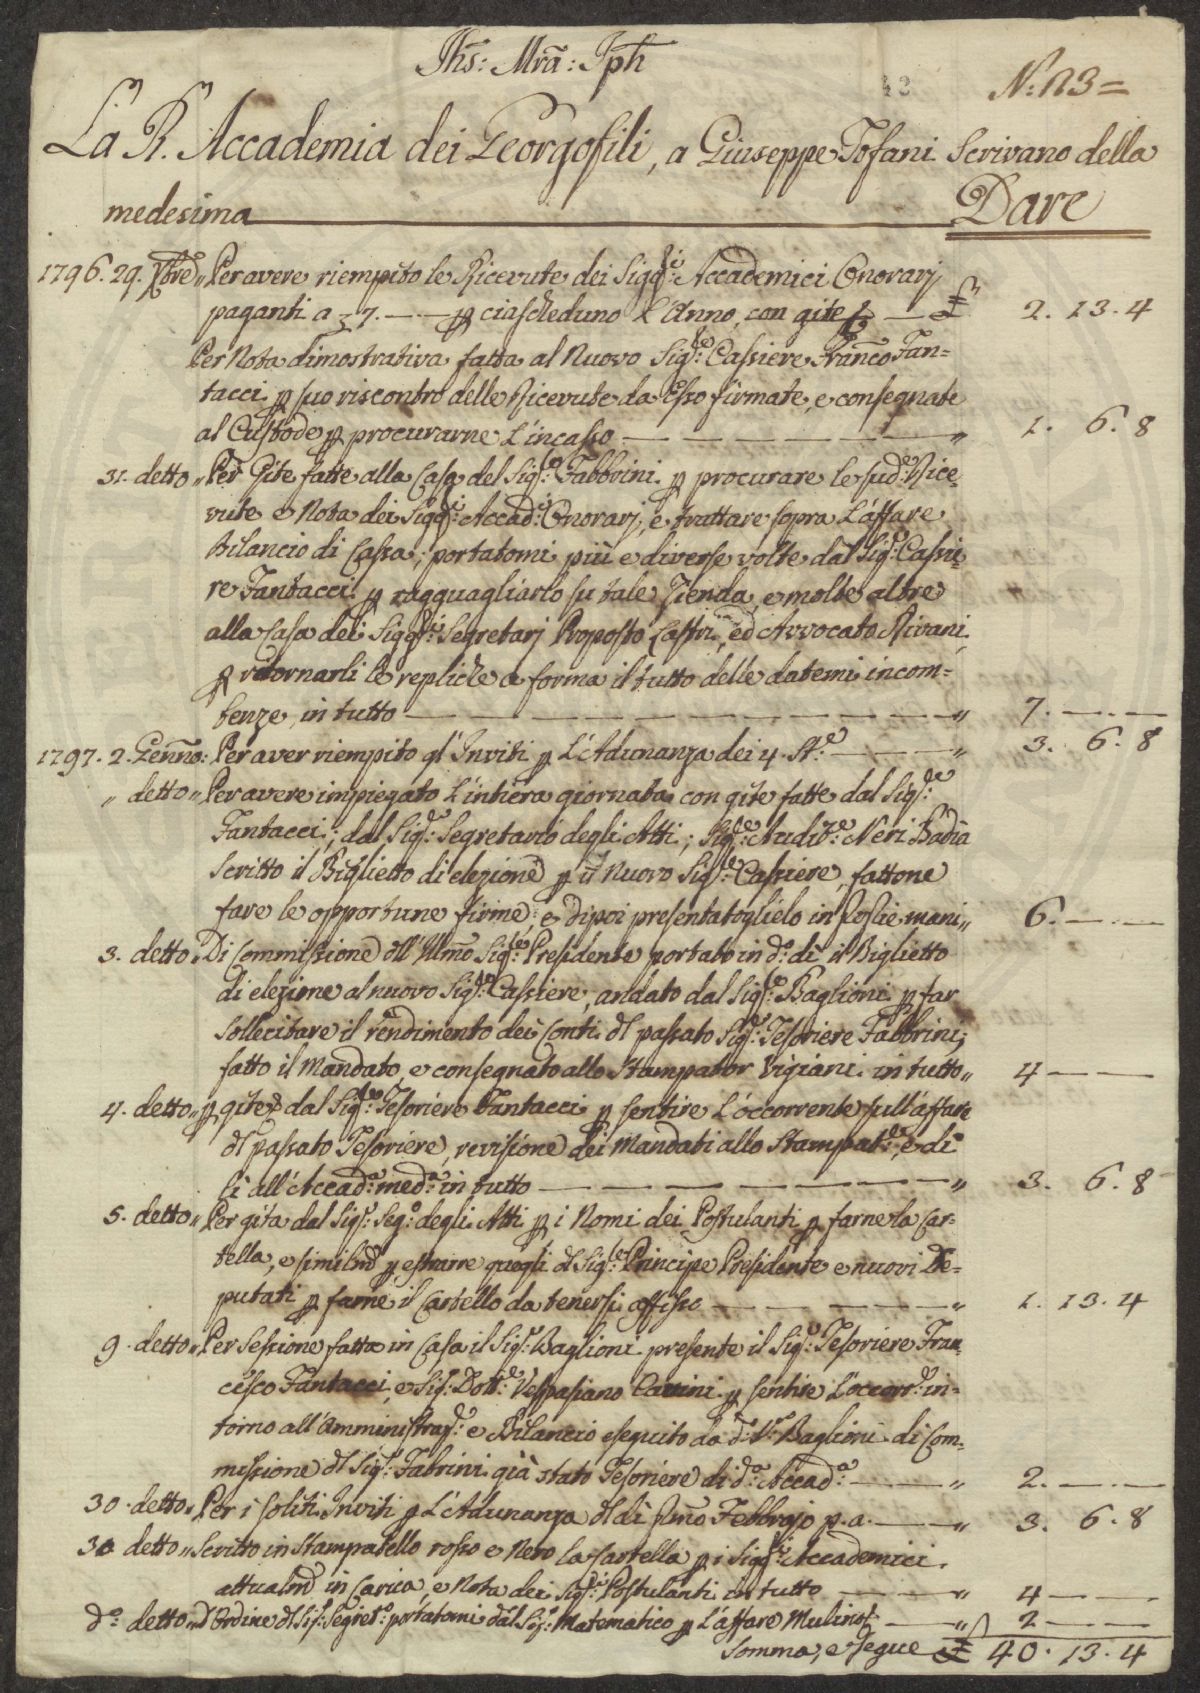 Jhs: Mra: Jph
42
N: 113=
La R. Accademia dei Georgofili, a Giuseppe Tofani Scrivano della
medesima Dare
1796. 29. Xbre „ Per avere riempito le Ricevute dei Sigg:ri Accademici Onorarj
paganti a £ 7. — — p ciascheduno L'Anno, con gite — £ 2. 13. 4
Per Nota dimostrativa fatta al Nuovo Sig:re Cassiere Franco Fan=
tacci p suo riscontro delle Ricevute da Esso firmate, e consegnate
al Custode p procurarne L'incasso — „ 1. 6. 8
31. detto „ Per Gite fatte alla Casa del Sig:re Fabbrini p procurare le sud:e Rice=
vute e Nota dei Sigg:ri Accad:ci Onorarj, e trattare sopra L'affare
Bilancio di Cassa; portatomi più e diverse volte dal Sig:r Cassie=
re Fantacci p ragguagliarlo su tale Zienda, e molte altre
alla Casa dei Sigg:ri Segretarj Proposto Lastri, ed Avvocato Rivani,
p ritornarli le repliche a forma il tutto delle datemi incom=
benze, in tutto — „ 7. — —
1797. 2. Genno: Per aver riempito gl'Inviti p L'Adunanza dei 4. St:e — „ 3. 6. 8
„ detto „ Per avere impiegato L'intiera giornata con gite fatte dal Sig:re
Fantacci; dal Sig:re Segretario degli Atti; Sig:re Audit:re Neri Badia
scritto il Biglietto di elezione p il Nuovo Sig:re Cassiere, fattone
fare le opportune firme, e dipoi presentatoglielo in Proprie mani „ 6. — —
3. detto „ Di Commissione dll'Illmo Sig:re Presidente portato in d:o dì il Biglietto
di elezione al nuovo Sig:re Cassiere, andato dal Sig:re Baglioni p far
sollecitare il rendimento dei Conti dl passato Sig:re Tesoriere Fabbrini;
fatto il Mandato, e consegnato allo Stampator Vigiani in tutto „ 4 — —
4. detto „ p gite dal Sig:re Tesoriere Fantacci p sentire L'occorrente sull'affare
dl passato Tesoriere, revisione dei Mandati allo Stampat:re, e di
lì all'Accad:a med:a in tutto — „ 3. 6. 8
5. detto „ Per gita dal Sig:r Seg:o degli Atti p i Nomi dei Postulanti p farne la Car=
tella, e similmte p estrarre quegli dl Sig:re Principe Presidente e nuovi De=
putati p farne il Cartello da tenersi affisso — „ 1. 13. 4
9. detto „ Per Sessione fatta in Casa il Sig:r Baglioni presente il Sig:r Tesoriere Fran=
cesco Fantacci, e Sig: Dott:e Vespasiano Carrini p sentire L'occorr:e in=
torno all'Amministraz:e e Bilancio eseguito da d:o S:r Baglioni di Com=
missione dl Sig:r Fabrini già stato Tesoriere di d:a Accad:a — „ 2. — —
30. detto „ Per i soliti Inviti p L'Adunanza dl dì Pmo Febbrajo p.a. — „ 3. 6. 8
30 detto „ Scritto in Stampatello rosso e Nero la Cartella p i Sigg:ri Accademici
attualmte in Carica, e Nota dei Sig:ri Postulanti in tutto — „ 4 — —
D:o detto „ d'Ordine dl Sig:r Segret:o portatomi dal Sig:r Matematico p L'affare Mulinot — „ 2 — —
Somma, e Segue £ 40. 13. 4